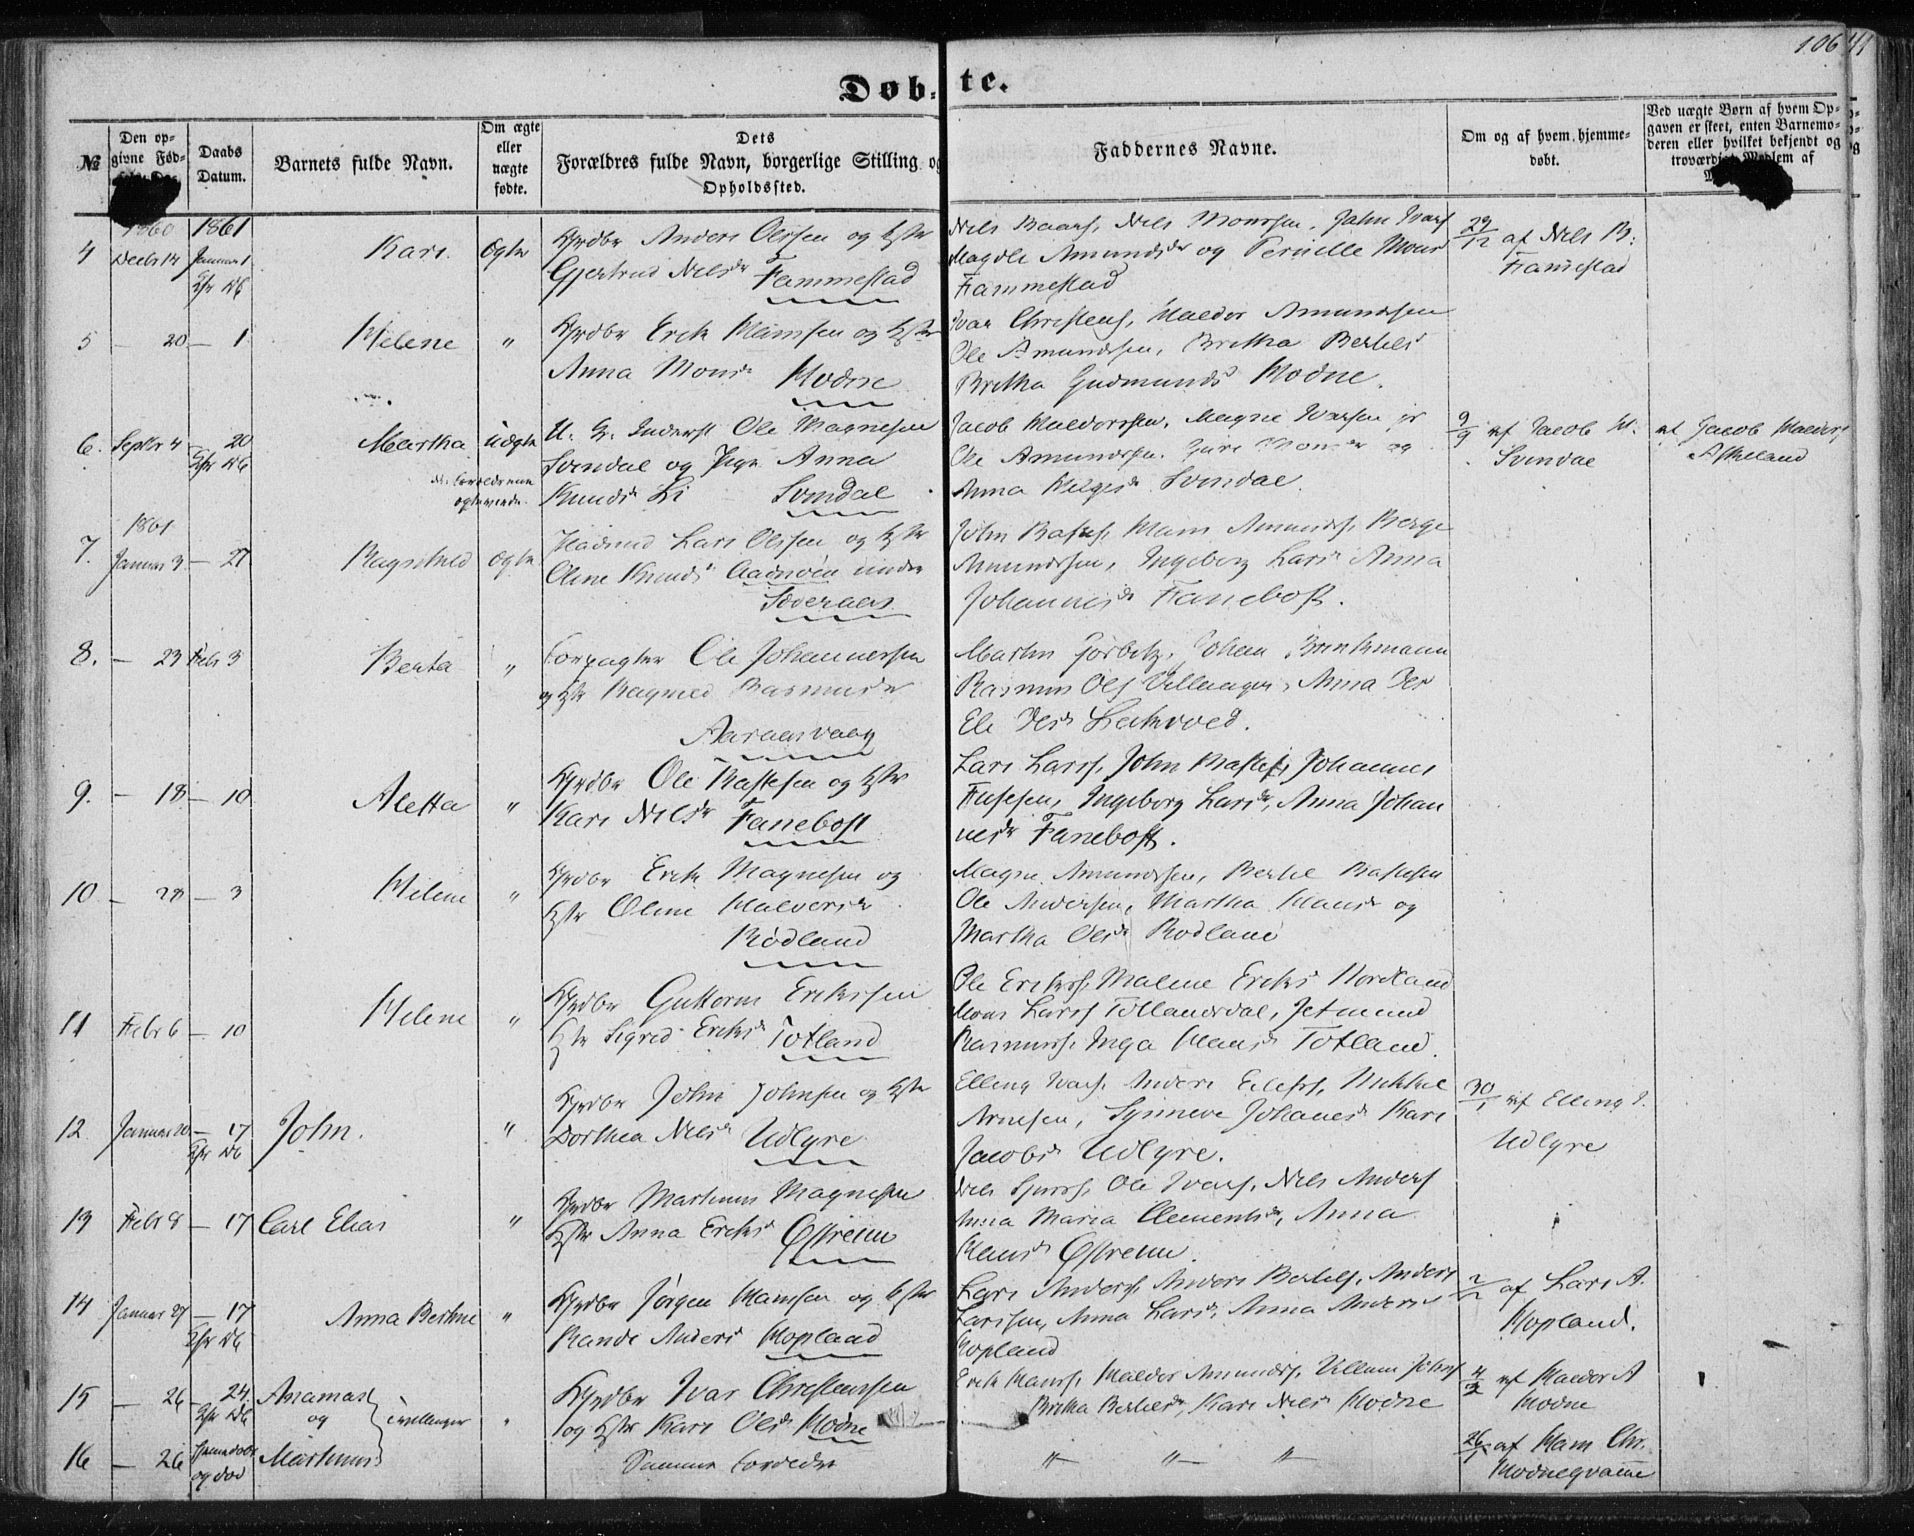 106
Døbte.
№
Den opgivne Fød-
Daabs Datum.
Barnets fulde Navn.
Om ægte eller uægte fødte.
Dets Forældres fulde Navn, borgerlige Stilling og Opholdssted.
Faddernes Navne.
Om og af hvem hjemmedøbt.
Ved uægte Børn af hvem Opgaven er skeet, enten Barnemoderen eller hvilket bekjendt og troværdigt Medlem af
1860 1861
4 Decbr 14 Januar 1 Kari. ægte Grdbr Anders Olssen og Hstr
Gjertrud Nelsdr Fammestad
Nels Baars, Nels Monssen, John Ivars
Magdli Amundsdr og Pernille Mons
Fammestad
29/12 af Nels B:
Famestad
5 - 20 - 1 Helene " Grdbr Erik Hansen og Hstr
Anna Monsdr Hodne
Ivar Christens, Haldor Amundsen
Ole Amundsen, Britha Bertels
Britha Gudmunds Hodne.
6. Septbr 4 - 20 Martha uægte U. G. Inderst Ole Magnesen
Svindal og Pige Anna
Knudsdr Li - Svindal
Jacob Haldorssen, Magne Ivarsen jr
Ole Amundssen. og
Anna Helgesdr Svindal.
9/9 af Jacob H:
Svindal
af Jacob Haldors
Askeland
1861
7. Januar 3 - 27 Ragnhild ægte Pladsmd Lars Olssen og Hstr
Oline Knuds under
Sævernes
John Rasms, Hans Amunds, Berge
Amundssen, Ingeborg Larsdr Anna
Johannesdr Fanebost.
8. - 23 Febr 3 Berta " Forpagter Ole Johannessen
og Hstr Ragnild Rasmusdr
Aaraasvaag
Martin Görbitz, Johan Brinkmann
Rasmus Ols Villanger, Anna Per
Eli Persdr Leiknved.
9. - 18 - 10 Aletta " Grdbr Ole Rastesen og Hstr
Kari Nelsdr Fanebost
Lars Larss, John Rastes, Johannes
Ingeborg Larsdr, Anna Johan
nesdr Fanebost.
10 - 28 - 3 Helene " Grdbr Erik Magnesen og
Hstr Oline Halversdr
Rödland
Magne Amundssen, Bertel Rastesen
Ole Andersen, Martha Hansdr og
Martha Olsdr Rödland
11 Febr 6 - 10 Helene " Grdbr Guttorm Erikssen
Hstr Sigrid Eriksdr Totland
Ole Erikss, Malene Eriks Hordland
Mons Larss Tollandsdal, Jetmund
Rasmuss, Inga Hansdr Totland.
12 Januar 20 - 17 John. " Grdbr John Johnsen og Hstr
Dorthea Nelsdr Udlyre
Elling Ivars, Anders Mikkel
Arnesen, Synneve Johanesdr Kari
Jacobsdr Udlyre.
30/1 af Elling I.
Udlyre
13 Febr 8 - 17 Carl Elias " Grdbr Martinus Magnesen
Hstr Anna Eriksdr Østreim
Nels Sjurss, Ole Ivars, Nels Anders
Anna Maria Clementsdr, Anna
Hansdr Østreim.
14 Januar 27 - 17 Anna Bertine " Grdbr Jörgen Hansen og Hstr
Rande Anders Hopland
Lars Anders, Anders Bertels, Anders
Larssen, Anna Larsdr, Anna Anders
Hopland
2/2 af Lars A.
Hopland.
15 - 26 - 24 Ananias
og tvillinger " Grdbr Ivar Christenssen
og Hstr Kari Olsdr Hodne
Erik Hanss, Haldor Amunds, Villum Johns
Britha Bertelsdr, Kari Nelsdr Hodne
af Haldor A
Hodne
16 - 26 hjemmedøbt
og död Martinus Samme Forældre
" " "
26/1 af Hans Chr.
Hodnegvamme